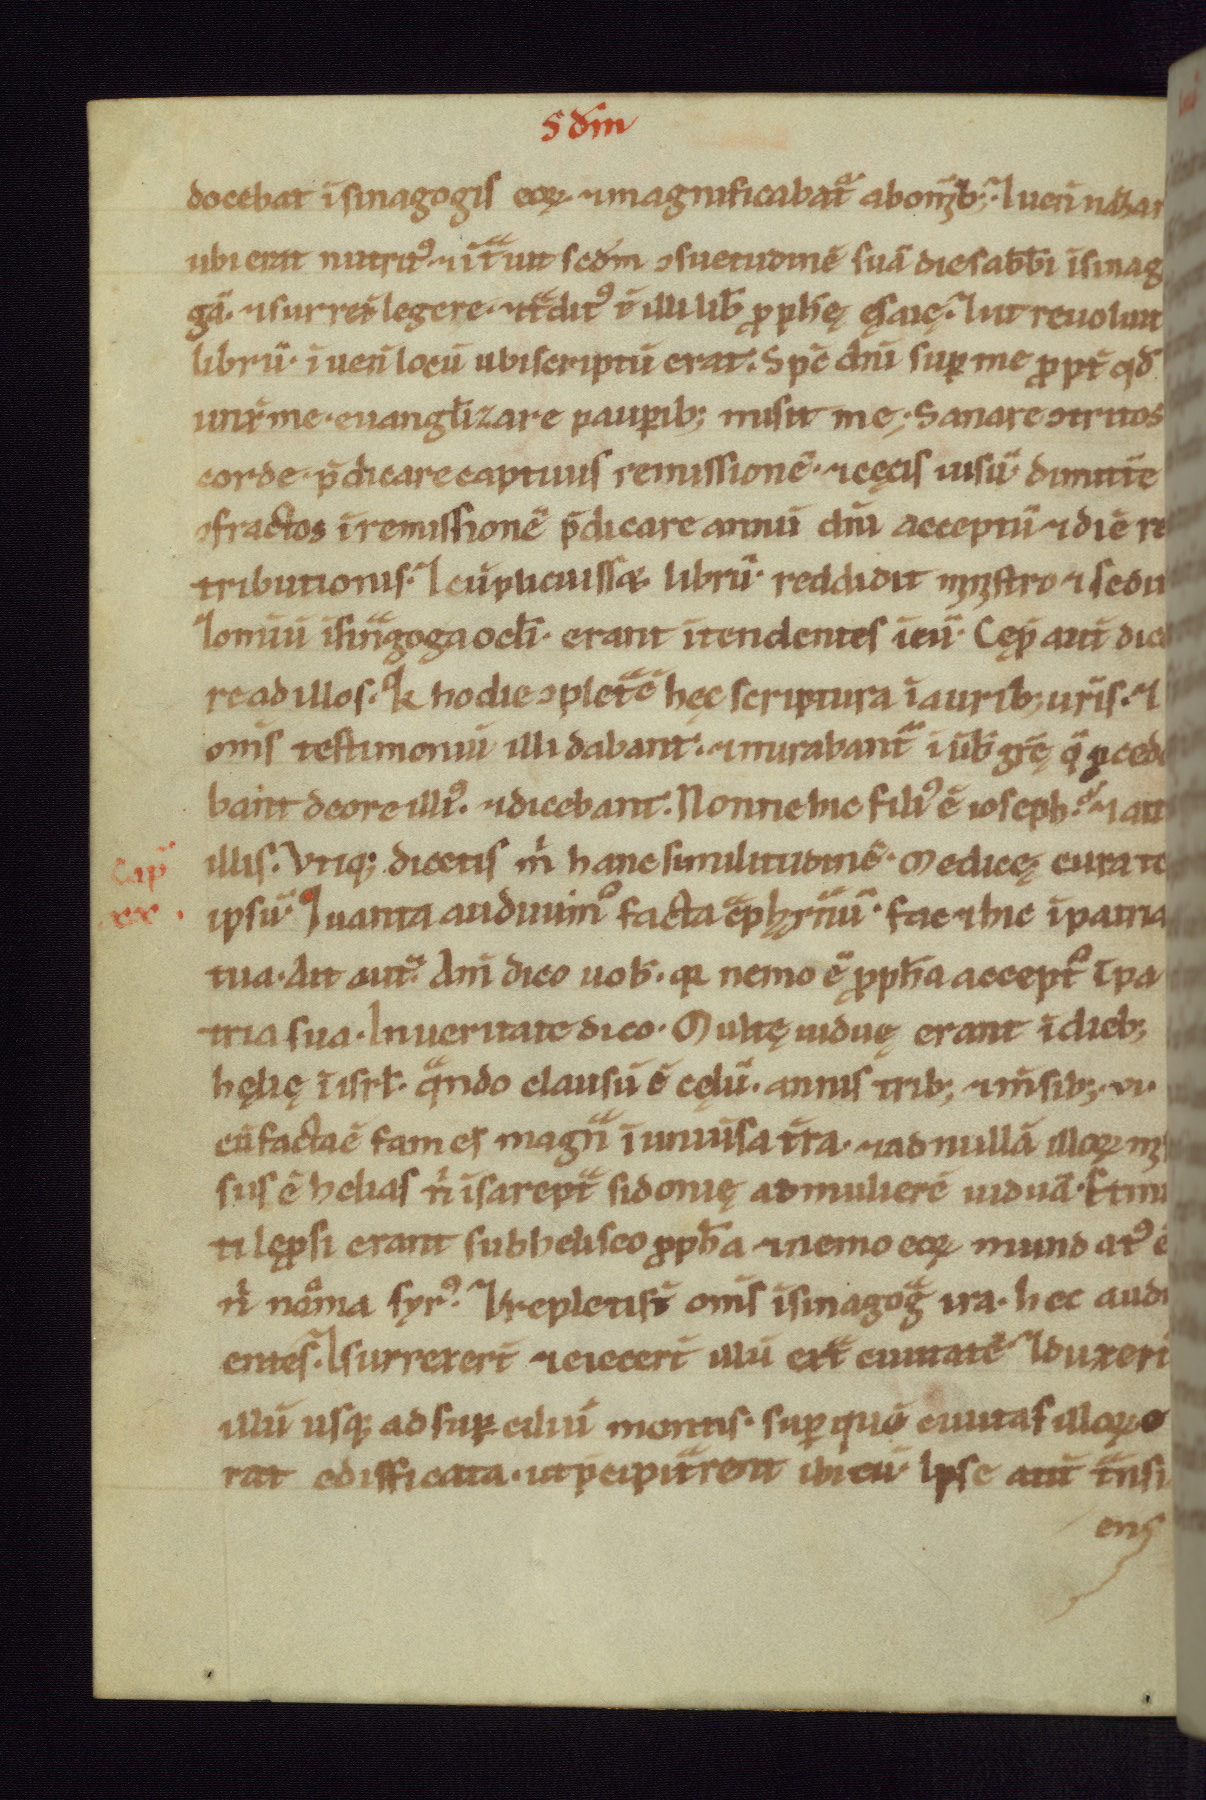 sdm̅
docebat ı̅ sinagogis eoꝝ ⁊ magnificabat᷑ ab om̅ib; ⁊ uen̅ nazar
ubi erat nutrit᷒ ⁊ ı̅t̾uit sedm̅ ꝯsuetudinē suā die sabb̅i ı̅ sinag
gā ⁊ surrex̅ legere ⁊ t̾dit᷒ ē illi lib̅ ꝓph̅ę esaię ⁊ ut reuoluit
librū ı̅uen̅ locū ubi scriptū erat. Sp̅c dn̅i suꝑ me ꝓpt̅ qd̅
unx̅ me euangl̅izare pauꝑib; misit me. Sanare ꝯtritos
corde p̅dicare captiuis remissionē ⁊ cęcis uisū dimitt̅e
ꝯfractos ı̅ remissionē p̅dicare annū dn̅i acceptū ⁊ diē re
tributionis. ⁊ cū plicuiss& librū reddidit ministro ⁊ sedit
⁊ om̅iū ı̅ sinagoga ocl̅i erant ı̅tendentes ı̅ eū. Cęp̅ aut̅ dice
re ad illos. Qr̅ hodie ꝯplet̅ ē hęc scriptura ı̅ aurib; ur̅is. ⁊
om̅s testimoniū illi dabant. ⁊ mirabant᷑ ı̅ ub̅ gr̅ę q̅ ꝓcede
bant de ore illi᷒. ⁊ dicebant. Nonne hic fili᷒ ē ioseph. ⁊ ait
illis. Utiq; dicetis m̅ hanc similitudinē. Medicę cura te
Cap̅
xx.
ipsū. Quanta audiuim᷒ facta ı̅ capharnaū fac ⁊ hic ı̅ patria
tua. Ait aut̅. Am̅ dico uob̅. qꝛ nemo ē ꝓph̅a accept᷒ ı̅ pa
tria sua. In ueritate dico. Multę uiduę erant ı̅ dieb;
hęlię ı̅ isrl̅. qn̅do clausū ē cęlū annis trib; ⁊ m̅sib; vi.
cū facta ē fames magna ı̅ uniūsa t̅ra. ⁊ ad nullā illoꝝ mis
sus ē helias n̅ ı̅ sarept̅ sidonię ad mulierē uiduā. Et mu
ti lęprosi erant sub heliseo ꝓph̅a ⁊ nemo eoꝝ mundat᷒ ē
n̅ naama syr᷒. ⁊ repleti st̅ om̅s ı̅ sinagoga ira. hec audi
entes. ⁊ surrexer̅t ⁊ eiecer̅t illū ext̅ ciuitatē ⁊ duxer̅t
illū usq; ad suꝑciliū montis suꝑ quē ciuitas illoꝝ e
rat edifficata. ut p̅cipitarent ibi eū. Ipse aut̅ tn̅si
ens